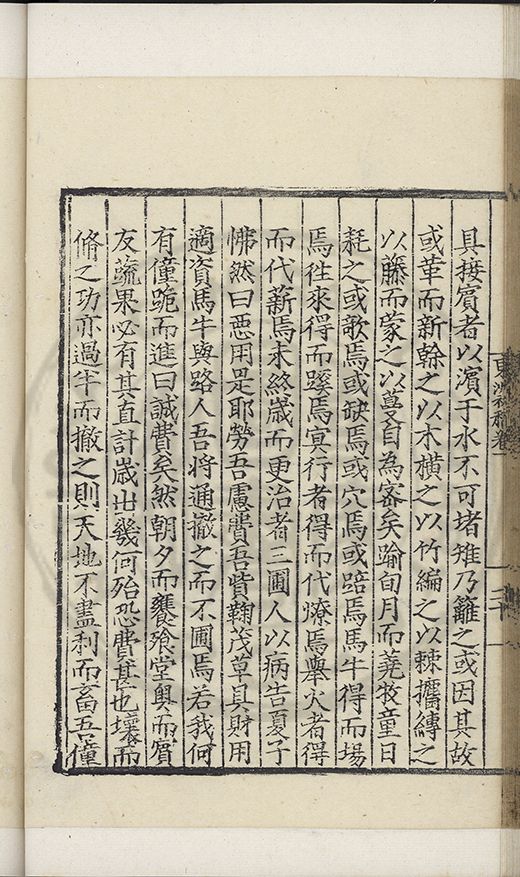 具接賓者以濱于水不可堵雉乃籬之或因其故
或革而新榦之以木橫之以竹編之以棘攜縛之
以藤而蒙之以蔓自為密矣踰旬月而蕘牧童日
耗之或欹焉或缺焉或穴焉或踣焉馬牛得而場
焉往來得而蹊焉冥行者得而代燎焉舉火者得
而代薪焉未終歲而更治者三圃人以病告夏子
怫然曰惡用是耶勞吾慮費吾貲鞠茂草具財用
適資馬牛與路人吾將通撤之而不圃焉若我何
有僮跪而進曰誠費矣然朝夕而饔飧堂奧而賓
友蔬果必有其直計歲出幾何殆恐費甚也壞而
脩之功亦過半而撤之則天地不盡利而畜吾僮